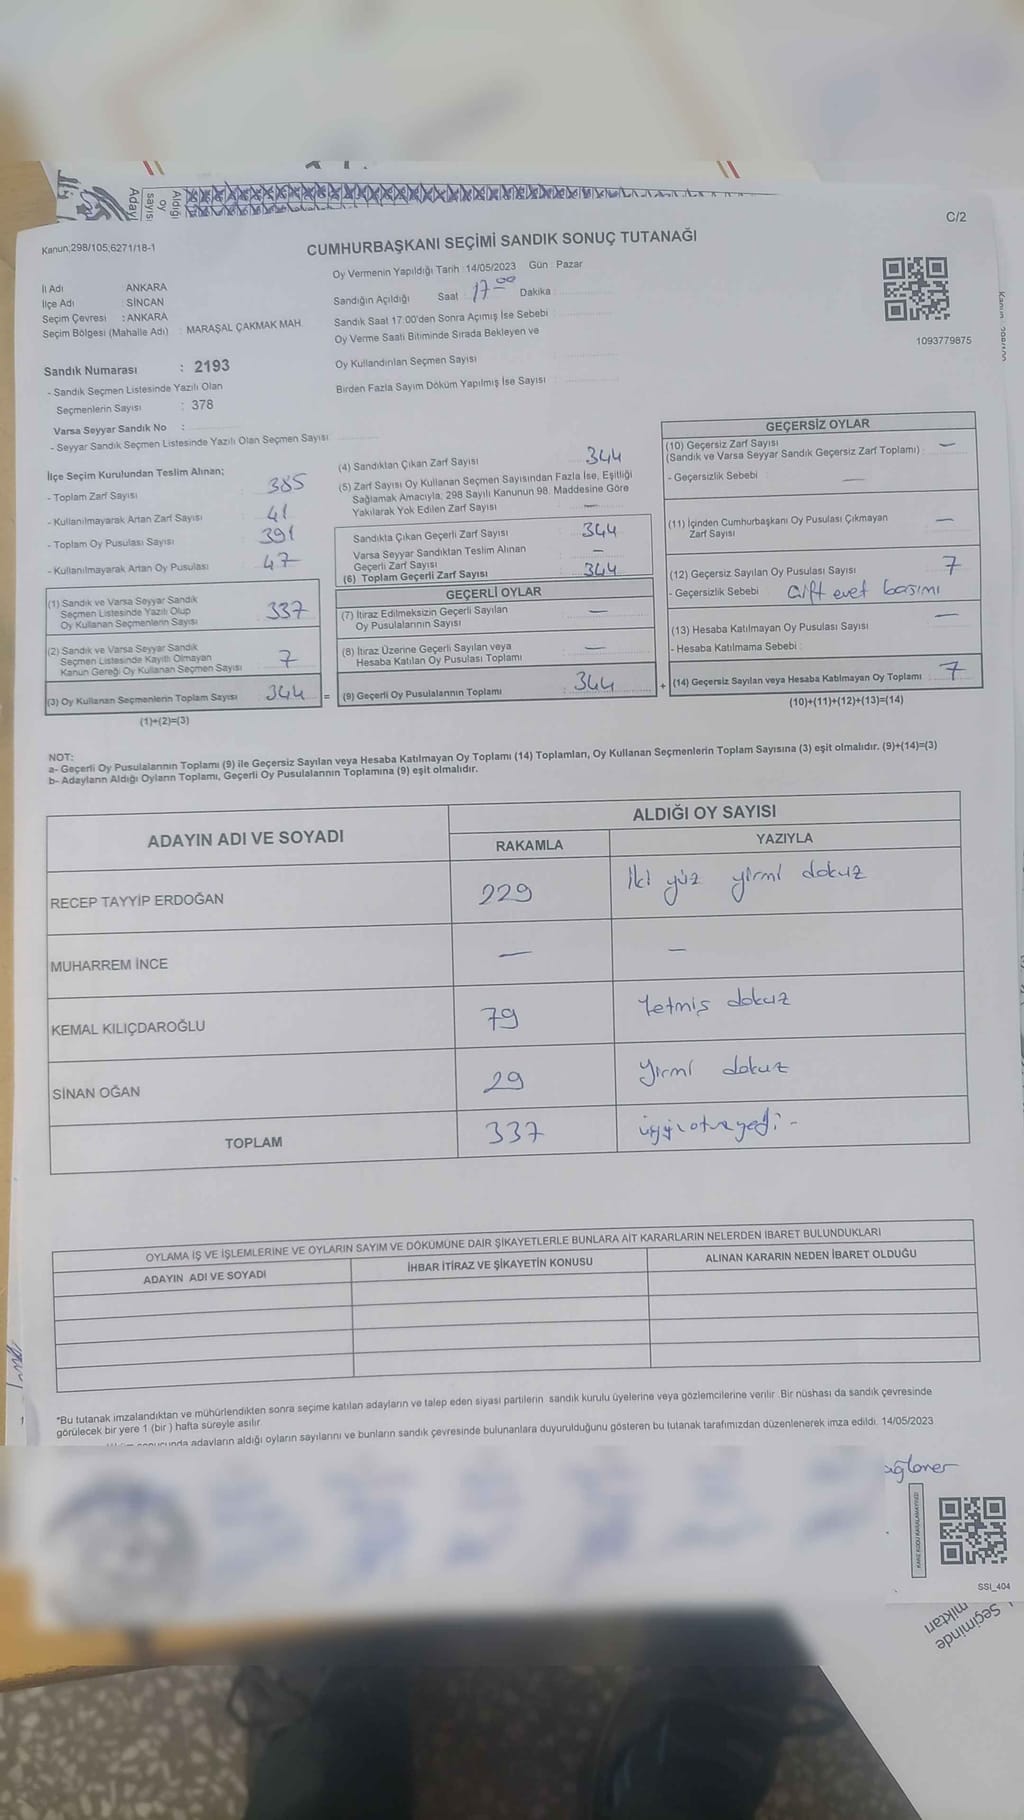 Adayı
Aldığı
oy
sayısı
C/2
Kanun;298/105;6271/18-1
CUMHURBAŞKANI SEÇİMİ SANDIK SONUÇ TUTANAĞI
Oy Vermenin Yapıldığı Tarih :14/05/2023 Gün : Pazar
İl Adı : ANKARA
İlçe Adı : SİNCAN
Seçim Çevresi : ANKARA
Seçim Bölgesi (Mahalle Adı) : MARAŞAL ÇAKMAK MAH.
Sandığın Açıldığı Saat : 17 00 Dakika :
Sandık Saat 17:00'den Sonra Açımış İse Sebebi :
Oy Verme Saati Bitiminde Sırada Bekleyen ve
Oy Kullandırılan Seçmen Sayısı :
Birden Fazla Sayım Döküm Yapılmış İse Sayısı :
1093779875
Sandık Numarası : 2193
- Sandık Seçmen Listesinde Yazılı Olan
Seçmenlerin Sayısı : 378
Varsa Seyyar Sandık No :
- Seyyar Sandık Seçmen Listesinde Yazılı Olan Seçmen Sayısı :
İlçe Seçim Kurulundan Teslim Alınan;
- Toplam Zarf Sayısı 385
- Kullanılmayarak Artan Zarf Sayısı 41
- Toplam Oy Pusulası Sayısı 391
- Kullanılmayarak Artan Oy Pusulası 47
(1) Sandık ve Varsa Seyyar Sandık
Seçmen Listesinde Yazılı Olup
Oy Kullanan Seçmenlerin Sayısı 337
(2) Sandık ve Varsa Seyyar Sandık
Seçmen Listesinde Kayıtlı Olmayan
Kanun Gereği Oy Kullanan Seçmen Sayısı 7
(3) Oy Kullanan Seçmenlerin Toplam Sayısı 344 =
(1)+(2)=(3)
(4) Sandıktan Çıkan Zarf Sayısı 344
(5) Zarf Sayısı Oy Kullanan Seçmen Sayısından Fazla İse, Eşitliği
Sağlamak Amacıyla, 298 Sayılı Kanunun 98. Maddesine Göre
Yakılarak Yok Edilen Zarf Sayısı —
Sandıkta Çıkan Geçerli Zarf Sayısı 344
Varsa Seyyar Sandıktan Teslim Alınan
Geçerli Zarf Sayısı —
(6) Toplam Geçerli Zarf Sayısı 344
GEÇERLİ OYLAR
(7) İtiraz Edilmeksizin Geçerli Sayılan
Oy Pusulalarının Sayısı —
(8) İtiraz Üzerine Geçerli Sayılan veya
Hesaba Katılan Oy Pusulası Toplamı —
(9) Geçerli Oy Pusulalarının Toplamı : 344 +
GEÇERSİZ OYLAR
(10) Geçersiz Zarf Sayısı
(Sandık ve Varsa Seyyar Sandık Geçersiz Zarf Toplamı) : —
- Geçersizlik Sebebi : —
(11) İçinden Cumhurbaşkanı Oy Pusulası Çıkmayan
Zarf Sayısı —
(12) Geçersiz Sayılan Oy Pusulası Sayısı 7
- Geçersizlik Sebebi : Çift evet basımı
(13) Hesaba Katılmayan Oy Pusulası Sayısı —
- Hesaba Katılmama Sebebi :
(14) Geçersiz Sayılan veya Hesaba Katılmayan Oy Toplamı 7
(10)+(11)+(12)+(13)=(14)
NOT:
a- Geçerli Oy Pusulalarının Toplamı (9) ile Geçersiz Sayılan veya Hesaba Katılmayan Oy Toplamı (14) Toplamları, Oy Kullanan Seçmenlerin Toplam Sayısına (3) eşit olmalıdır. (9)+(14)=(3)
b- Adayların Aldığı Oyların Toplamı, Geçerli Oy Pusulalarının Toplamına (9) eşit olmalıdır.
ADAYIN ADI VE SOYADI
ALDIĞI OY SAYISI
RAKAMLA YAZIYLA
RECEP TAYYİP ERDOĞAN 229 İki yüz yirmi dokuz
MUHARREM İNCE — —
KEMAL KILIÇDAROĞLU 79 Yetmiş dokuz
SİNAN OĞAN 29 yirmi dokuz
TOPLAM 337 üçyüzotuzyedi -
OYLAMA İŞ VE İŞLEMLERİNE VE OYLARIN SAYIM VE DÖKÜMÜNE DAİR ŞİKAYETLERLE BUNLARA AİT KARARLARIN NELERDEN İBARET BULUNDUKLARI
ADAYIN ADI VE SOYADI İHBAR İTİRAZ VE ŞİKAYETİN KONUSU ALINAN KARARIN NEDEN İBARET OLDUĞU
*Bu tutanak imzalandıktan ve mühürlendikten sonra seçime katılan adayların ve talep eden siyasi partilerin sandık kurulu üyelerine veya gözlemcilerine verilir. Bir nüshası da sandık çevresinde
görülecek bir yere 1 (bir ) hafta süreyle asılır.
adayların aldığı oyların sayılarını ve bunların sandık çevresinde bulunanlara duyurulduğunu gösteren bu tutanak tarafımızdan düzenlenerek imza edildi. 14/05/2023
KARE KODU KARALAMAYINIZ!
SSI_404
Seçiminde
miktarı